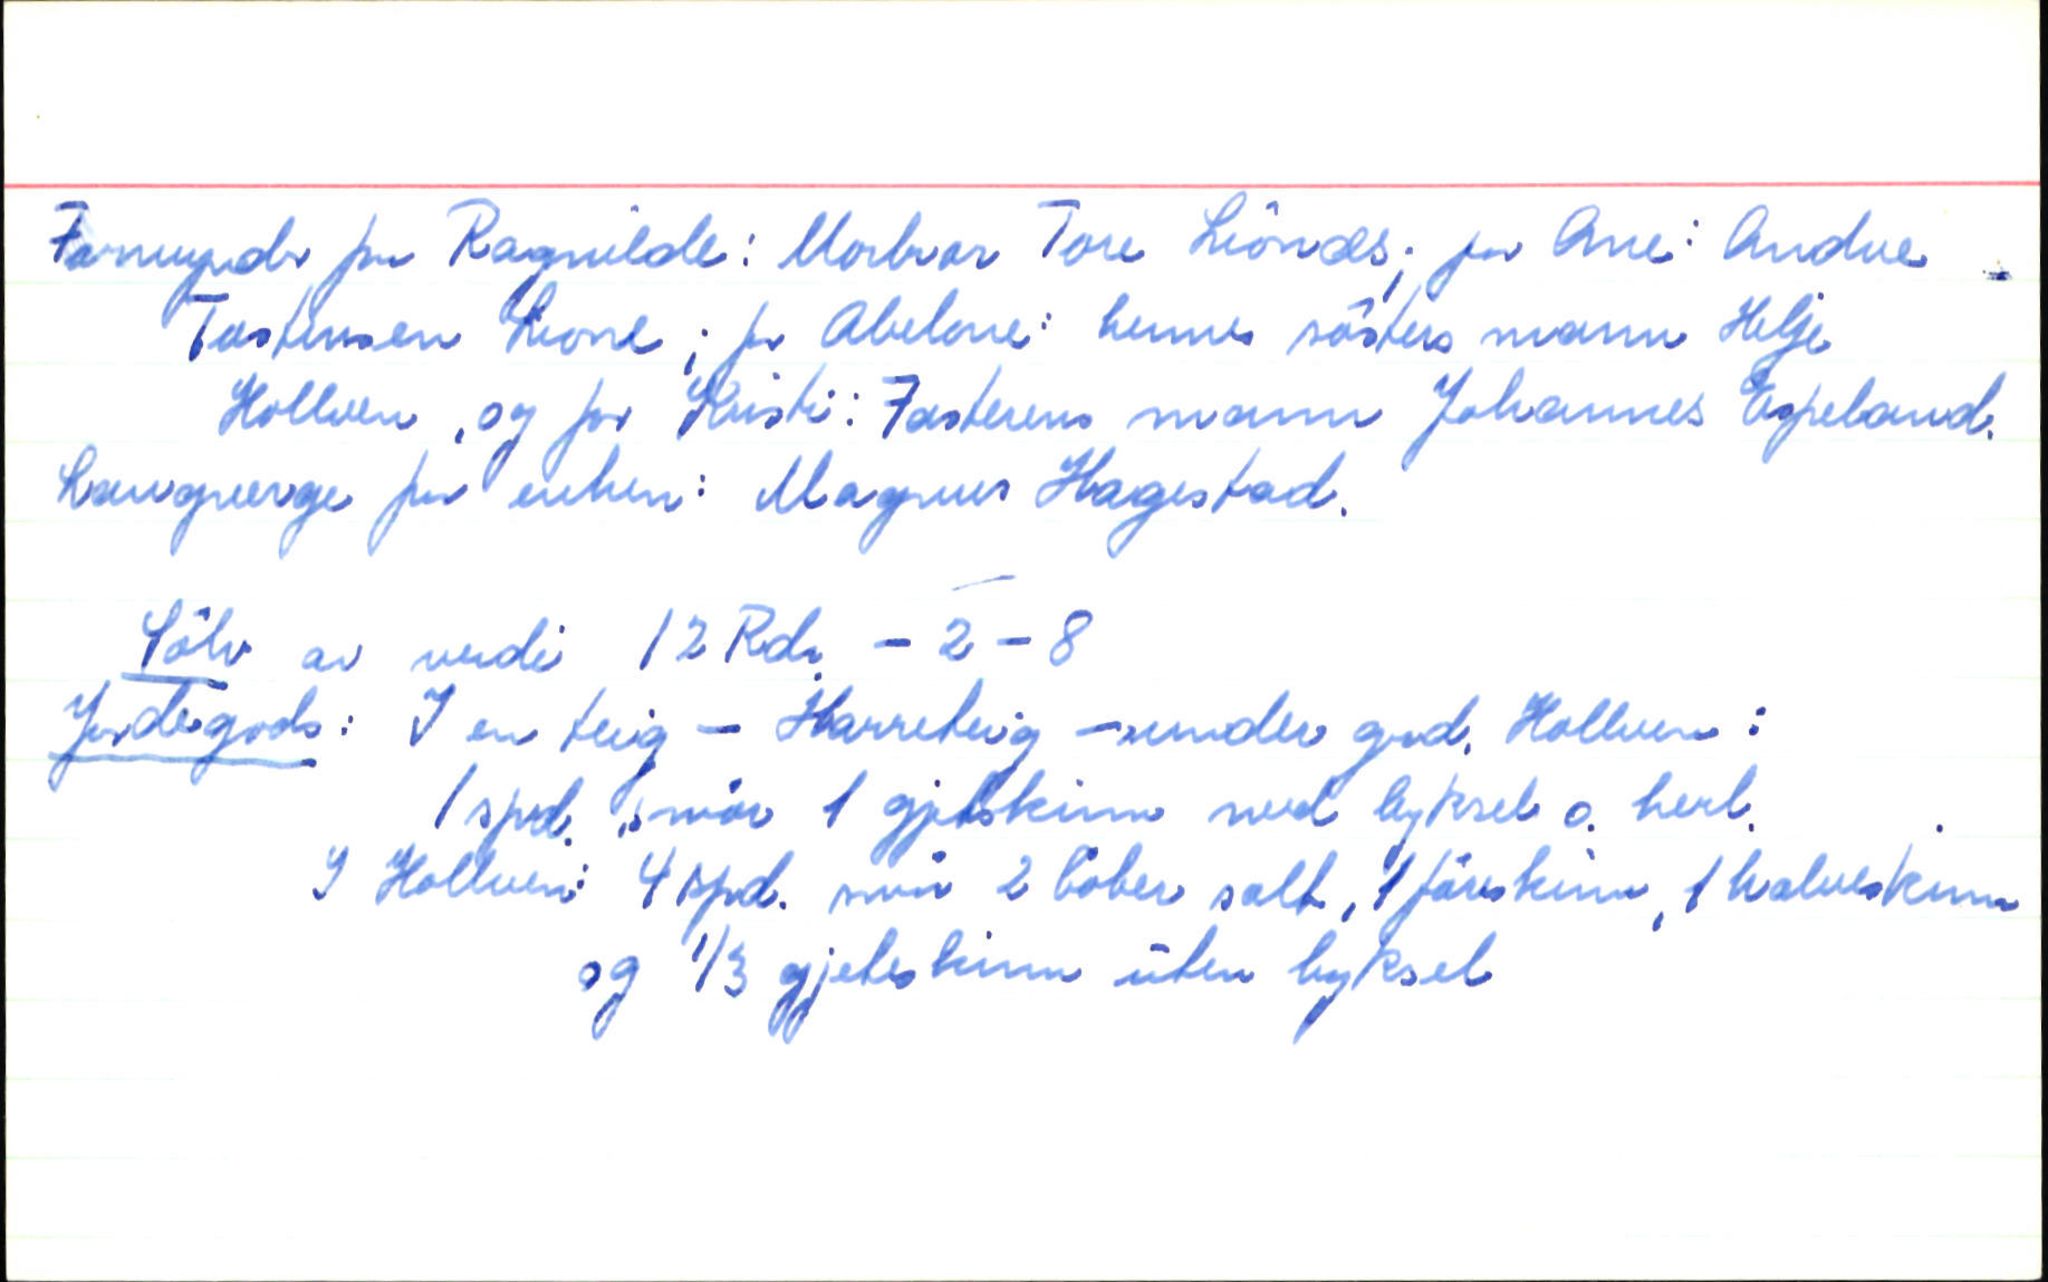 Formynder for Ragnilde: Morbror Tore Liönæs; for Ane: Andue
Tostensen Lione; for Abelone: hennes sösters mann Helje
Hollven, og for Kristi: Fasterens mann Johannes Espeland.
Laugverge for enken: Magnus Hagestad.
Sölv av verdi 12 Rdr. - 2 - 8
Jordegods: I en teig - Harreteig - under grd. Hollven:
1 spd. smör 1 gjetskinn med byksel o. herl.
I Hollven: 4 spd. smör 2 löber salt, 1 fårskinn, 1 kalveskinn
og 1/3 gjeteskinn uten byksel